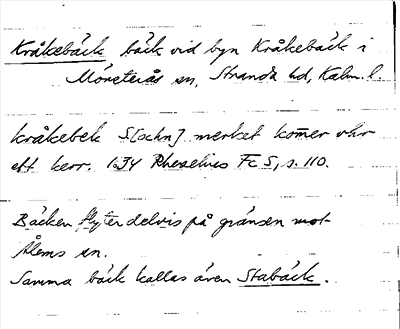 Kråkebäck bäck vid byn Kråkebäck i
Mönsterås sn, Stranda hd, Kalm. l.
kråkebek S[ochn] merket komer vhr
ett kerr. 1634 Rhezelius Fc 5, s. 110.
Bäcken flyter delvis på gränsen mot
Ålems sn.
Samma bäck kallas även Stabäck.